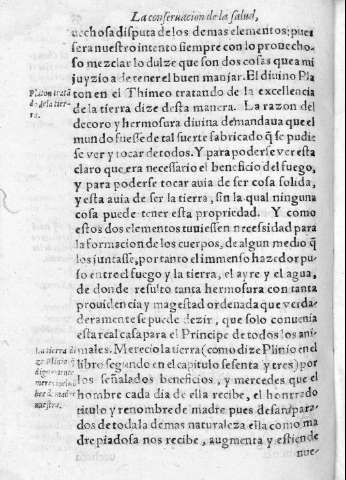 La conseruacion de la salud,
uechosa disputa de los demas elementos; pues
sera nuestro intento siempre con lo prouecho-
so mezclar lo dulze que son dos cosas que a mi
juyzio a de tener el buen manjar. El diuino Pla
Platon trata
do de la tier-
ra.
ton en el Thimeo tratando de la excellencia
de la tierra dize desta manera. La razon del
decoro y hermosura diuina demandaua que el
mundo fuesse de tal suerte fabricado q̃ se pudie
se ver y tocar de todos. Y para poderse ver esta
claro que era necessario el beneficio del fuego,
y para poderse tocar auia de ser cosa solida,
y esta auia de ser la tierra, sin la qual ninguna
cosa puede tener esta propriedad. Y como
estos dos elementos tuuiessen necessidad para
la formacion de los cuerpos, de algun medio q̃
los juntasse, por tanto el immenso hazedor pu-
so entre el fuego y la tierra, el ayre y el agua,
de donde resulto tanta hermosura con tanta
prouidencia y magestad ordenada que verda-
deramente se puede dezir, que solo conuenia
esta real casa para el Principe de todos los ani-
La tierra di
ze Plinio q̃
dignamente
merece
nombre de madre
nuestra.
males. Merecio la tierra (como dize Plinio en el
libro segundo en el capitulo sesenta y tres) por
los señalados beneficios, y mercedes que el
hombre cada dia de ella recibe, el honrrado
titulo y renombre de madre pues desanpara-
dos de toda la demas naturaleza ella como ma
dre piadosa nos recibe, augmenta y estiende
nue-